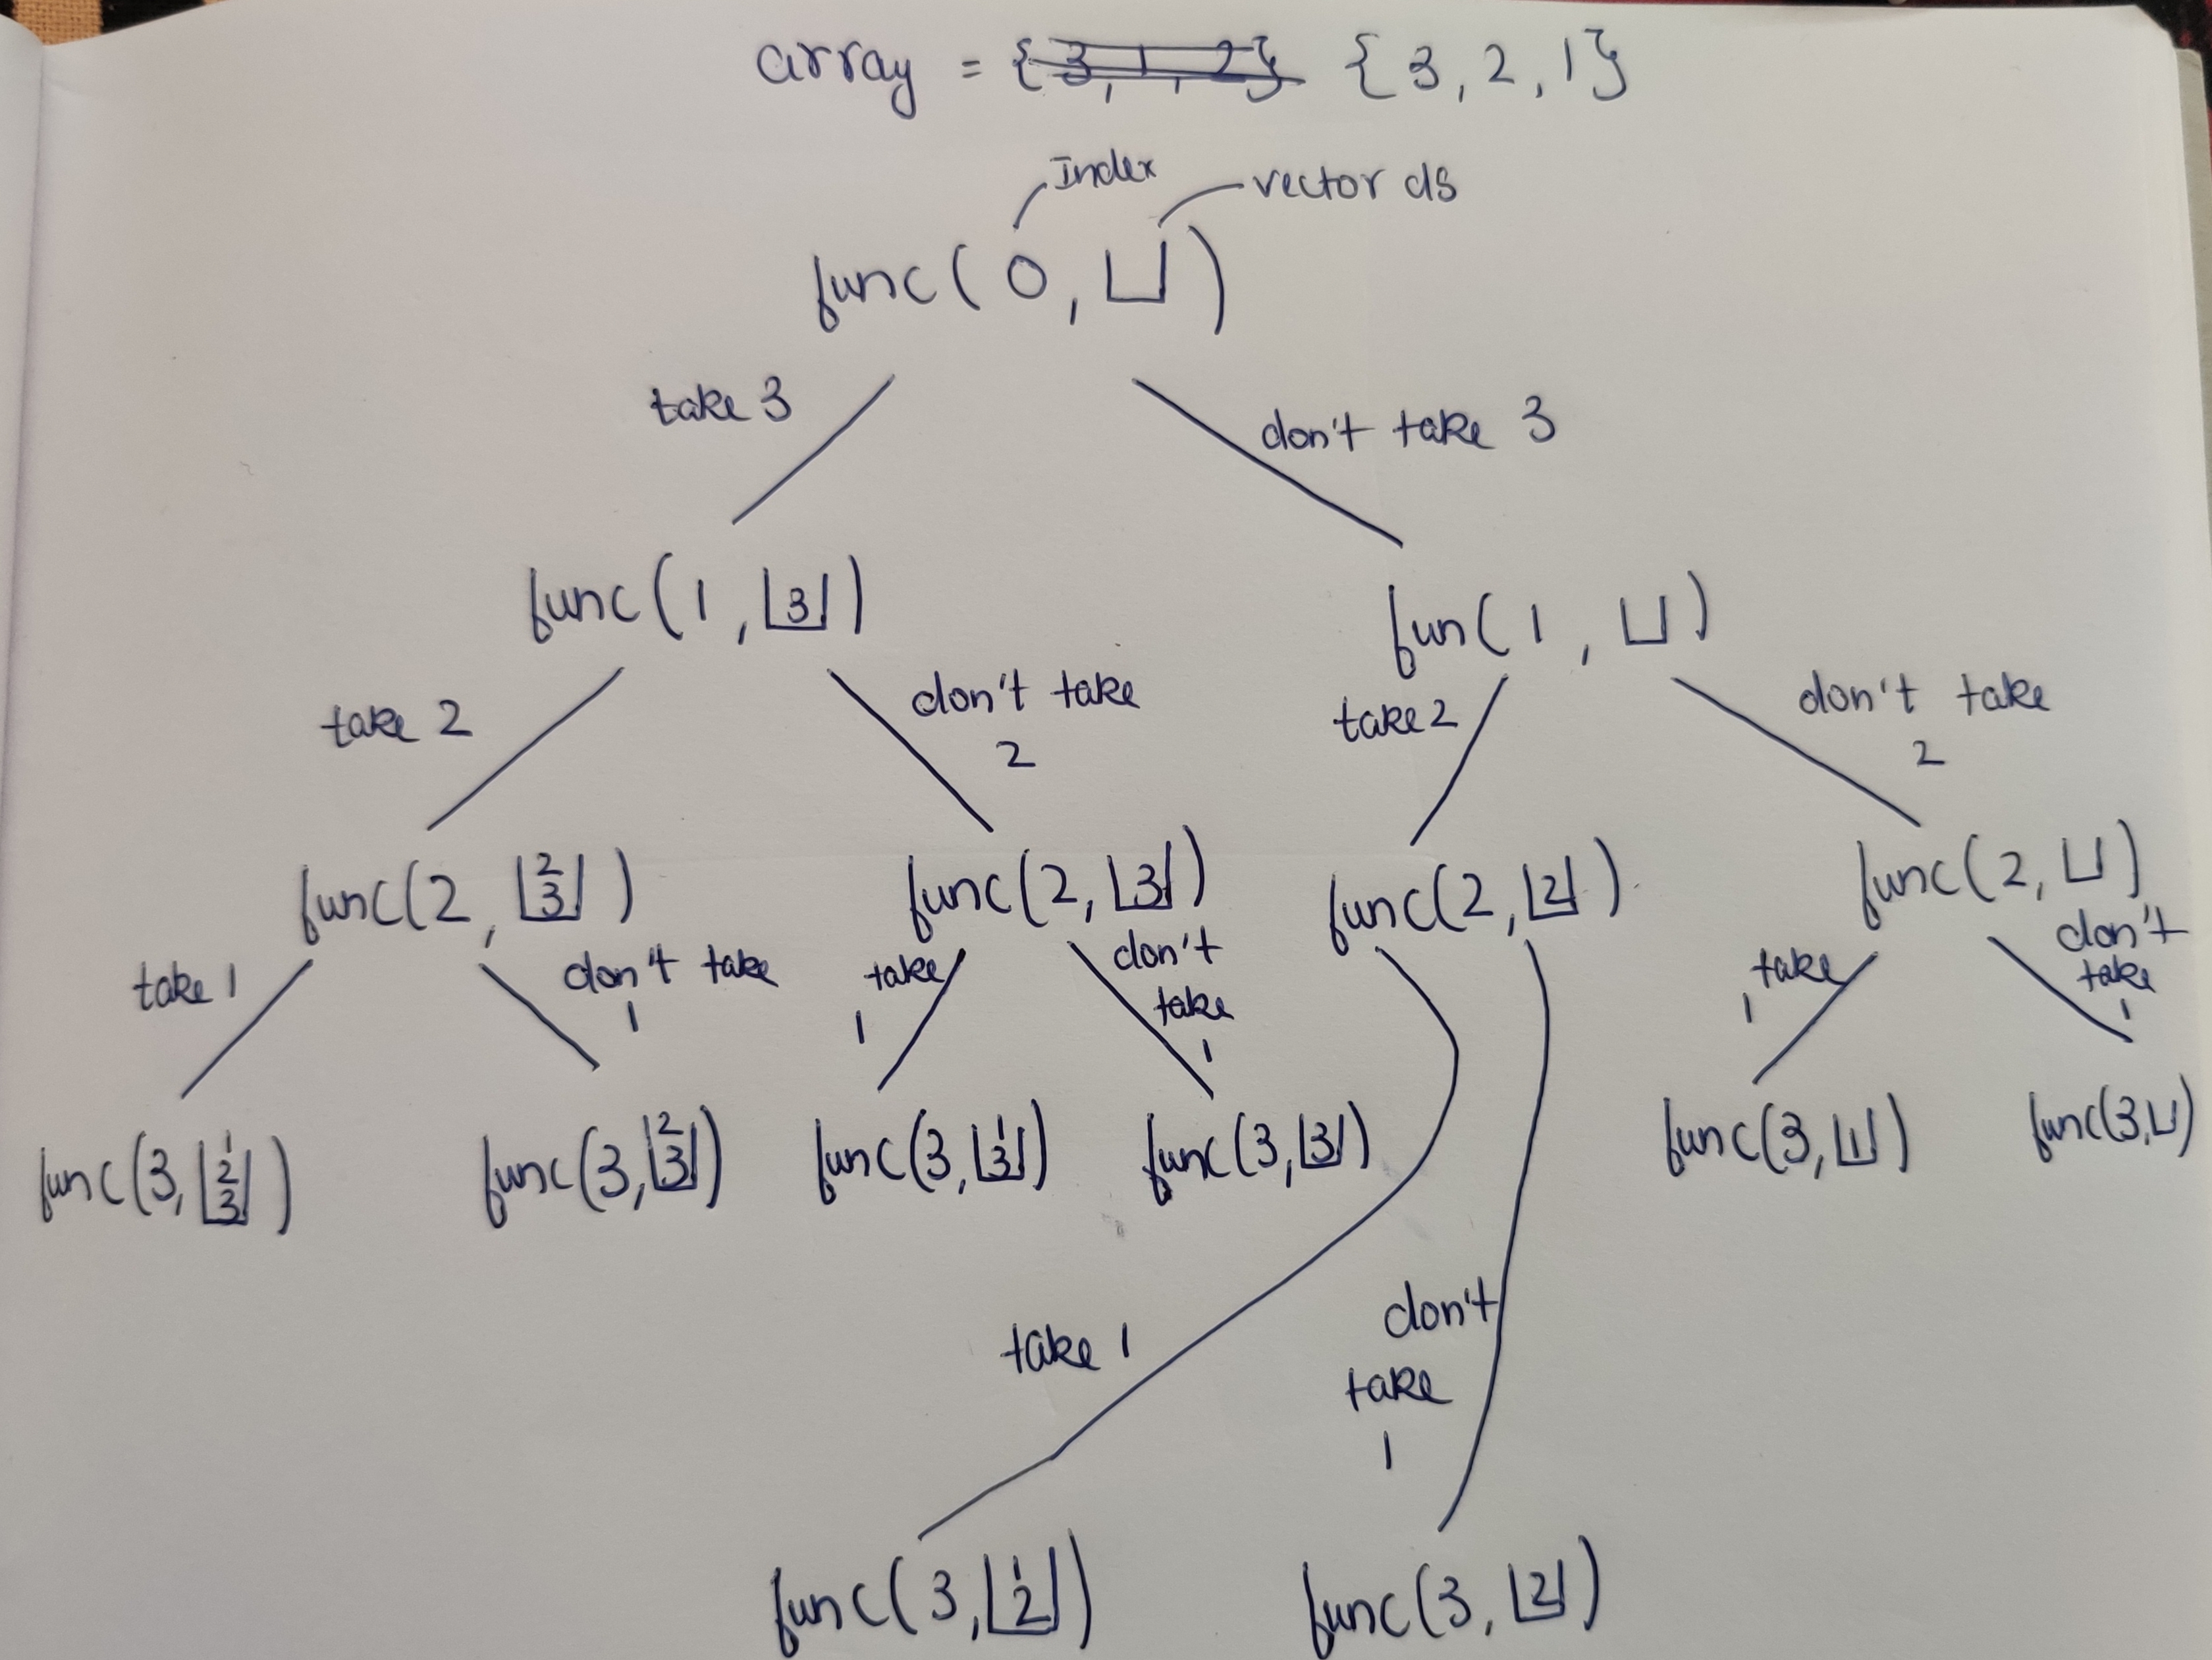 array = {3, 1, 2} {3, 2, 1}
Index
vector ds
func(0, )
take 3
don't take 3
func(1, 3)
fun(1, )
take 2
don't take
2
take 2
don't take
2
func(2, 2
3)
func(2, 3)
func(2, 2)
func(2, )
take 1
don't take
1
take
1
don't
take
1
take
1
don't
take
1
func(3, 1
2
3)
func(3, 2
3)
func(3, 1
3)
func(3, 3)
func(3, 1)
func(3, )
take 1
don't
take
1
func(3, 1
2)
func(3, 2)